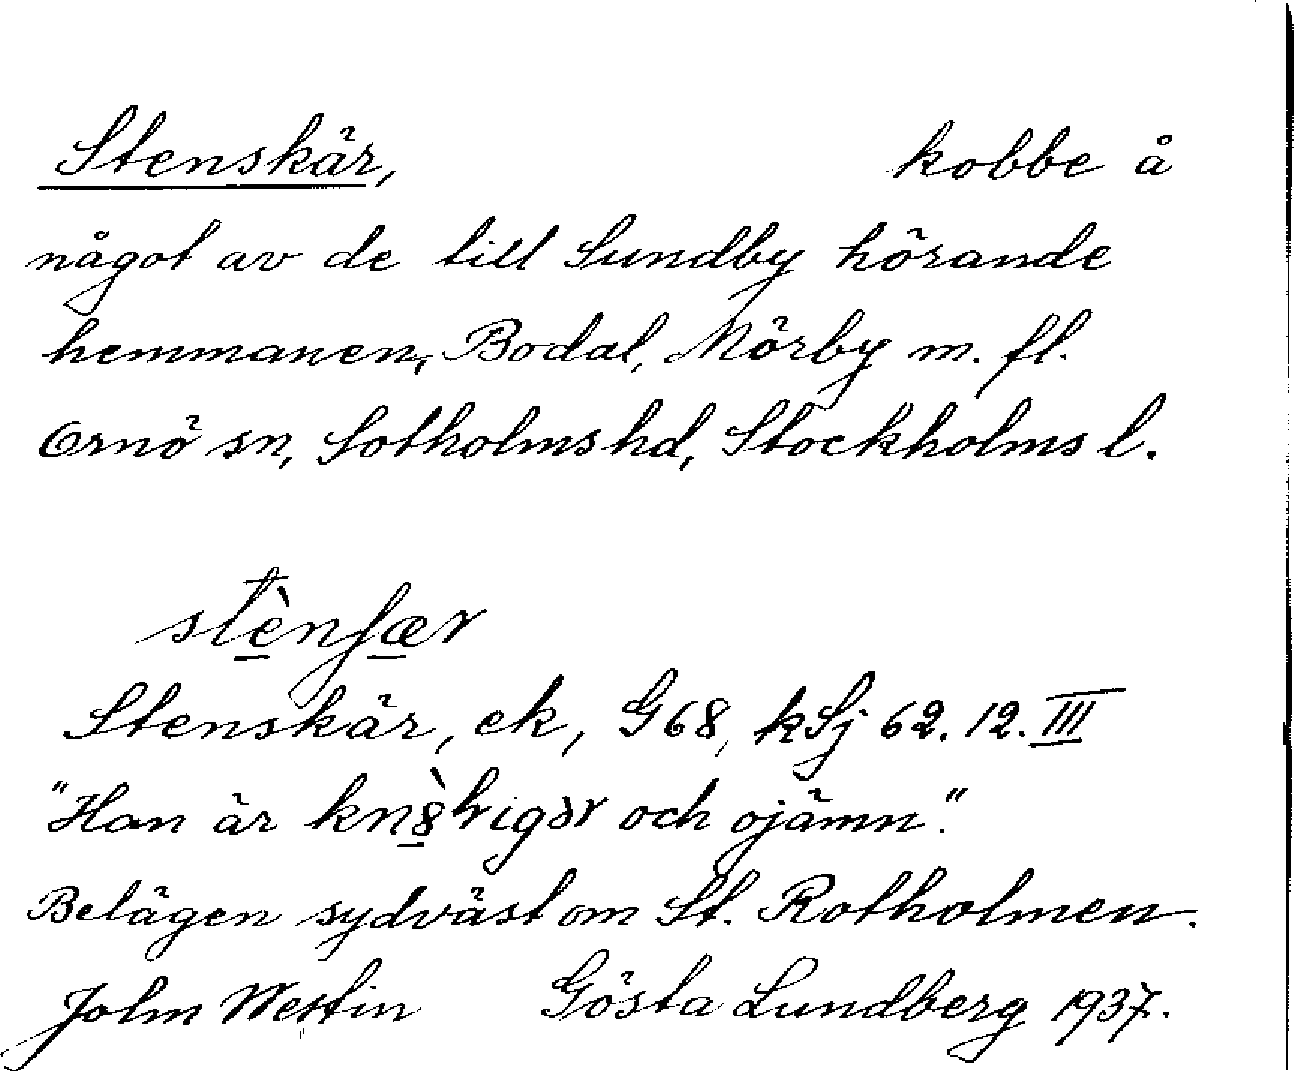 Stenskär, kobbe å
något av de till Sundby hörande
hemmanen, Bodal, Mörby m. fl.
Ornö sn, Sotholms hd, Stockholms l.
stè̱nʃæ̱r
Stenskär, ek, G68, kSj 62. 12. III
"Han är och ojämn".
Belägen sydväst om St. Rotholmen.
John Westin Gösta Lundberg 1937.